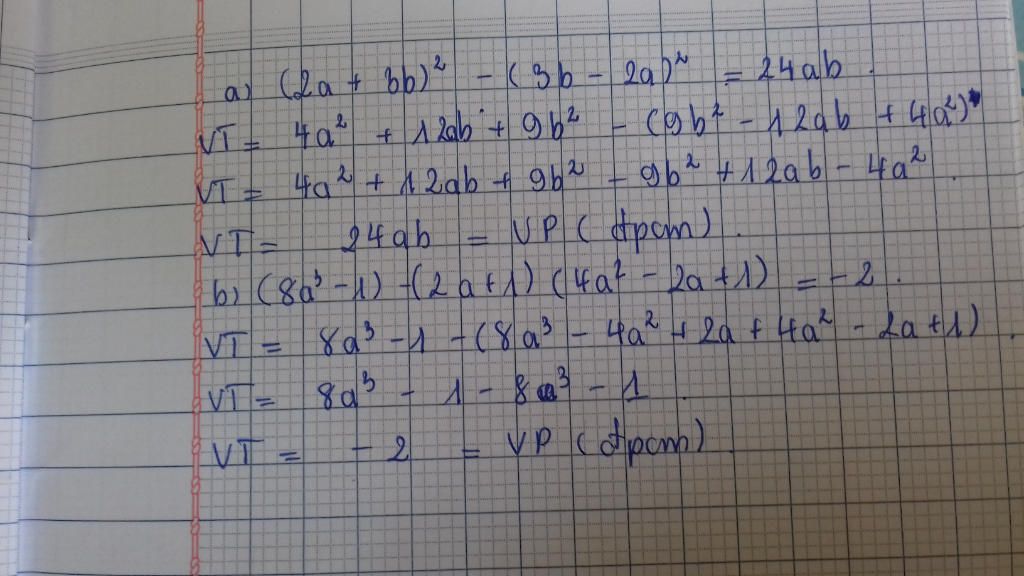 a) (2a + 3b)² - (3b - 2a)² = 24ab.
VT = 4a² + 12ab + 9b² - (9b² - 12ab + 4a²)
VT = 4a² + 12ab + 9b² - 9b² + 12ab - 4a².
VT = 24ab = VP (đpcm).
b) (8a³ - 1) - (2a + 1) (4a² - 2a + 1) = - 2.
VT = 8a³ - 1 - (8a³ - 4a² + 2a + 4a² - 2a + 1).
VT = 8a³ - 1 - 8a³ - 1.
VT = - 2 = VP (đpcm).